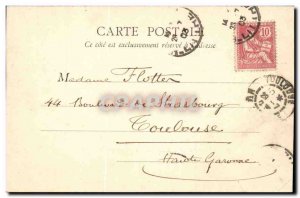 CARTE POSTALE
Ce côté est exclusivement réservé à l'adresse
10
Madame Flotter
44 Boulevard de Strasbourg
Toulouse
Haute Garonne
TOULOUSE